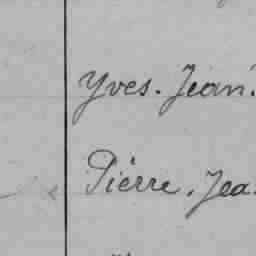 Yves. Jean.
Pierre. Jea